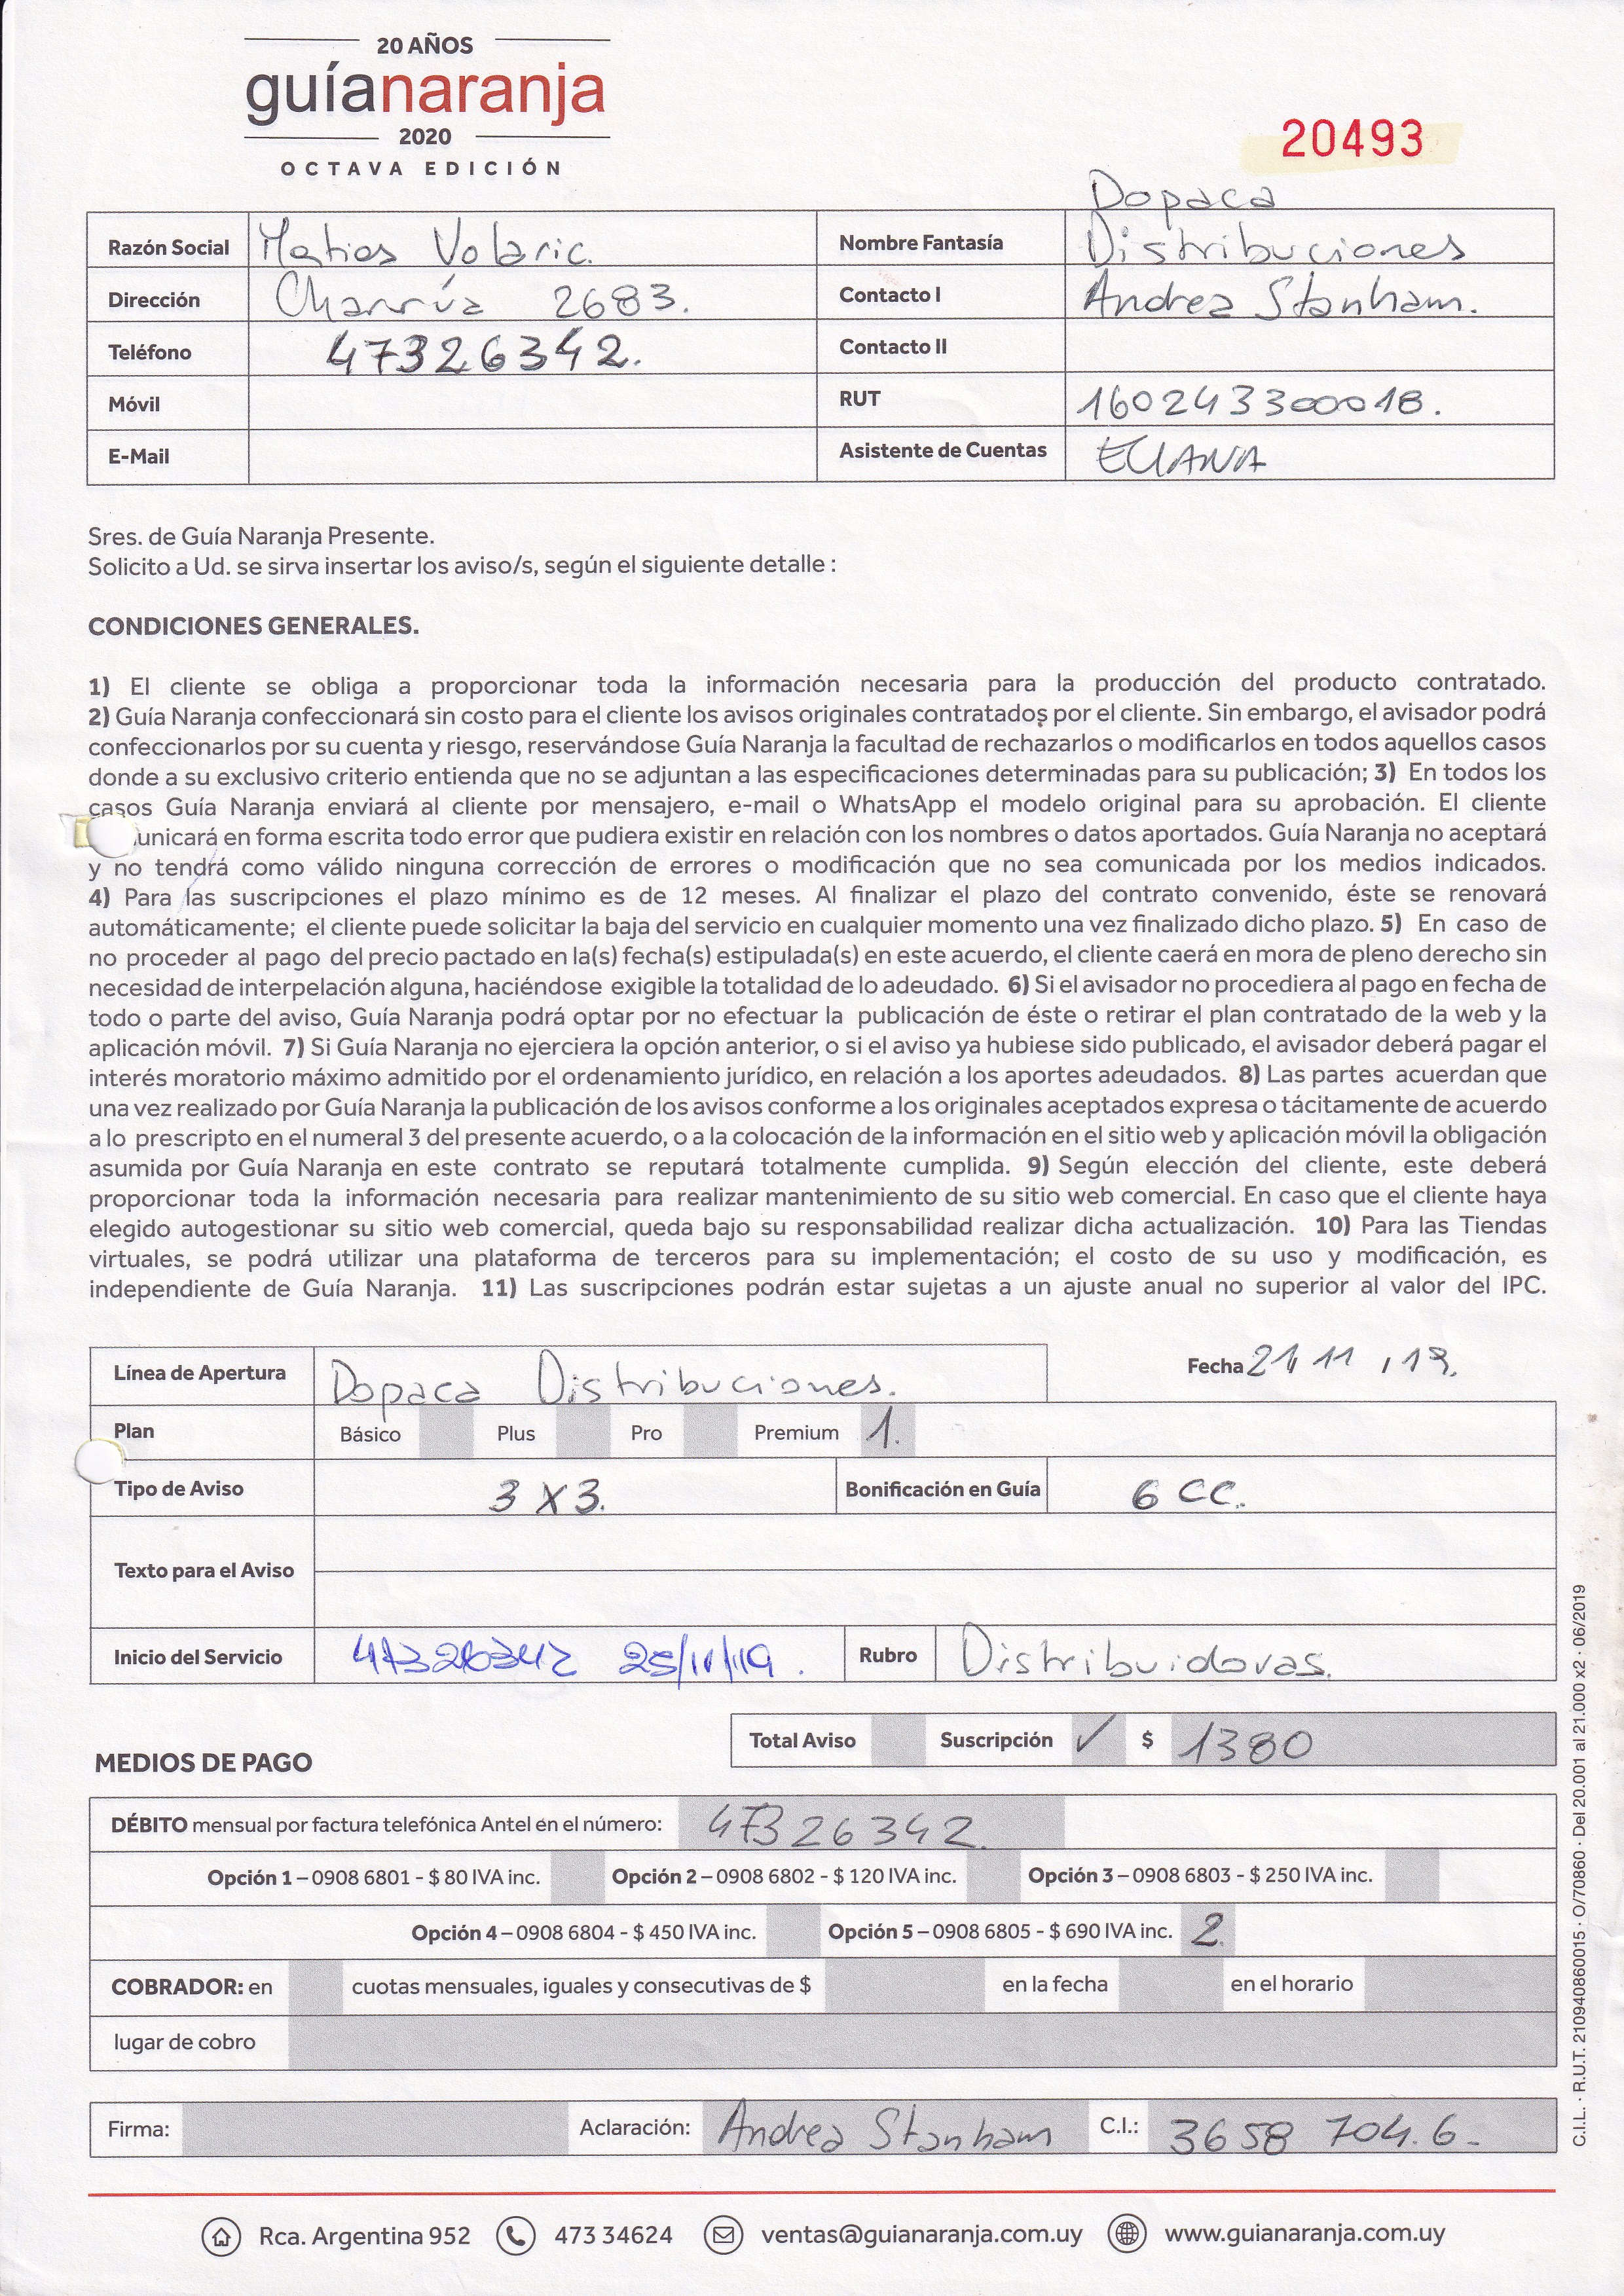 20 AÑOS
guíanaranja
2020
OCTAVA EDICIÓN
20493
Dopaca
Razón Social Matias Volaric. Nombre Fantasía Distribuciones
Dirección Charrúa 2683. Contacto I Andrea Stanham.
Teléfono 47326342. Contacto II
Móvil RUT 160243300018.
E-Mail Asistente de Cuentas ELIANA
Sres. de Guía Naranja Presente.
Solicito a Ud. se sirva insertar los aviso/s, según el siguiente detalle :
CONDICIONES GENERALES.
1) El cliente se obliga a proporcionar toda la información necesaria para la producción del producto contratado.
2) Guía Naranja confeccionará sin costo para el cliente los avisos originales contratados por el cliente. Sin embargo, el avisador podrá
confeccionarlos por su cuenta y riesgo, reservándose Guía Naranja la facultad de rechazarlos o modificarlos en todos aquellos casos
donde a su exclusivo criterio entienda que no se adjuntan a las especificaciones determinadas para su publicación; 3) En todos los
casos Guía Naranja enviará al cliente por mensajero, e-mail o WhatsApp el modelo original para su aprobación. El cliente
unicará en forma escrita todo error que pudiera existir en relación con los nombres o datos aportados. Guía Naranja no aceptará
y no tendrá como válido ninguna corrección de errores o modificación que no sea comunicada por los medios indicados.
4) Para las suscripciones el plazo mínimo es de 12 meses. Al finalizar el plazo del contrato convenido, éste se renovará
automáticamente; el cliente puede solicitar la baja del servicio en cualquier momento una vez finalizado dicho plazo. 5) En caso de
no proceder al pago del precio pactado en la(s) fecha(s) estipulada(s) en este acuerdo, el cliente caerá en mora de pleno derecho sin
necesidad de interpelación alguna, haciéndose exigible la totalidad de lo adeudado. 6) Si el avisador no procediera al pago en fecha de
todo o parte del aviso, Guía Naranja podrá optar por no efectuar la publicación de éste o retirar el plan contratado de la web y la
aplicación móvil. 7) Si Guía Naranja no ejerciera la opción anterior, o si el aviso ya hubiese sido publicado, el avisador deberá pagar el
interés moratorio máximo admitido por el ordenamiento jurídico, en relación a los aportes adeudados. 8) Las partes acuerdan que
una vez realizado por Guía Naranja la publicación de los avisos conforme a los originales aceptados expresa o tácitamente de acuerdo
a lo prescripto en el numeral 3 del presente acuerdo, o a la colocación de la información en el sitio web y aplicación móvil la obligación
asumida por Guía Naranja en este contrato se reputará totalmente cumplida. 9) Según elección del cliente, este deberá
proporcionar toda la información necesaria para realizar mantenimiento de su sitio web comercial. En caso que el cliente haya
elegido autogestionar su sitio web comercial, queda bajo su responsabilidad realizar dicha actualización. 10) Para las Tiendas
virtuales, se podrá utilizar una plataforma de terceros para su implementación; el costo de su uso y modificación, es
independiente de Guía Naranja. 11) Las suscripciones podrán estar sujetas a un ajuste anual no superior al valor del IPC.
Línea de Apertura Dopaca Distribuciones. Fecha 21/11/19.
Plan Básico Plus Pro Premium 1.
Tipo de Aviso 3 X 3. Bonificación en Guía 6 CC.
Texto para el Aviso
Inicio del Servicio 47326342 25/11/19. Rubro Distribuidoras.
Total Aviso Suscripción ✓ $ 1380
MEDIOS DE PAGO
DÉBITO mensual por factura telefónica Antel en el número: 47326342.
Opción 1 – 0908 6801 - $ 80 IVA inc. Opción 2 – 0908 6802 - $ 120 IVA inc. Opción 3 – 0908 6803 - $ 250 IVA inc.
Opción 4 – 0908 6804 - $ 450 IVA inc. Opción 5 – 0908 6805 - $ 690 IVA inc. 2.
COBRADOR: en cuotas mensuales, iguales y consecutivas de $ en la fecha en el horario
lugar de cobro
Firma: Aclaración: Andrea Stanham C.I.: 3658 704.6-
Rca. Argentina 952 473 34624 ventas@guianaranja.com.uy www.guianaranja.com.uy
C.I.L. · R.U.T. 210940860015 · O/70860 · Del 20.001 al 21.000 x2 · 06/2019